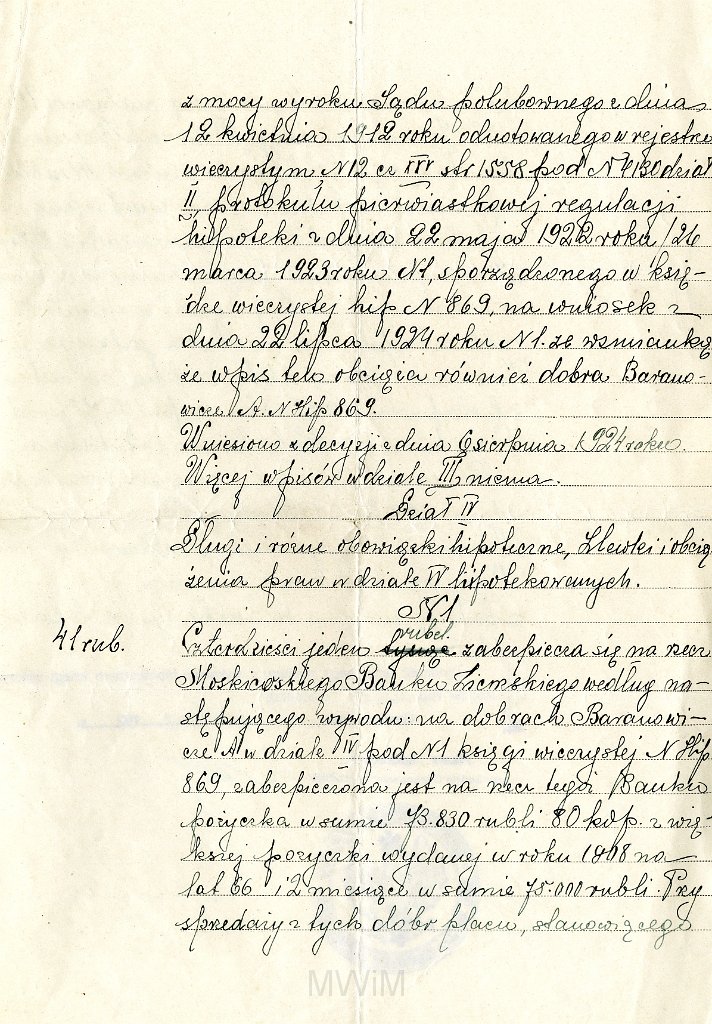 z mocy wyroku Sądu polubownego z dnia
12 kwietnia 1912 roku odnotowanego w rejestrze
wieczystym N 12 cz XXV str 1558 pod N 4130 dział
II protokułu pierwiastkowej regulacji
hipoteki z dnia 22 maja 1922 roku / 26
marca 1923 roku N1, sporządzonego w księ-
dze wieczystej hip N 869, na wniosek z
dnia 22 lipca 1924 roku N1. ze wzmianką
że wpis ten obciąża również dobra Barano-
wicze A. N Hip 869.
Wniesiono z decyzji z dnia 6 sierpnia 1924 roku.
Więcej wpisów w dziale III niema.
Dział IV
Długi i różne obowiązki hipoteczne, Zlewki i obcią
żenia praw w dziale IV hipotekowanych.
N1
41 rub.
rubel
Czterdzieści jeden tysięc zabezpiecza się na rzecz
Moskiewskiego Banku Ziemskiego według na-
stępującego wywodu: na dobrach Baranowi-
cze A w dziale IV pod N1 księgi wieczystej N Hip
869, zabezpieczona jest na rzecz tegoż Banku
pożyczka w sumie 73.830 rubli 80 kop. z wię-
kszej pożyczki wydanej w roku 1908 na
lat 66 i 2 miesiące w sumie 75.000 rubli. Przy
sprzedaży z tych dóbr placu, stanowiącego
MWiM